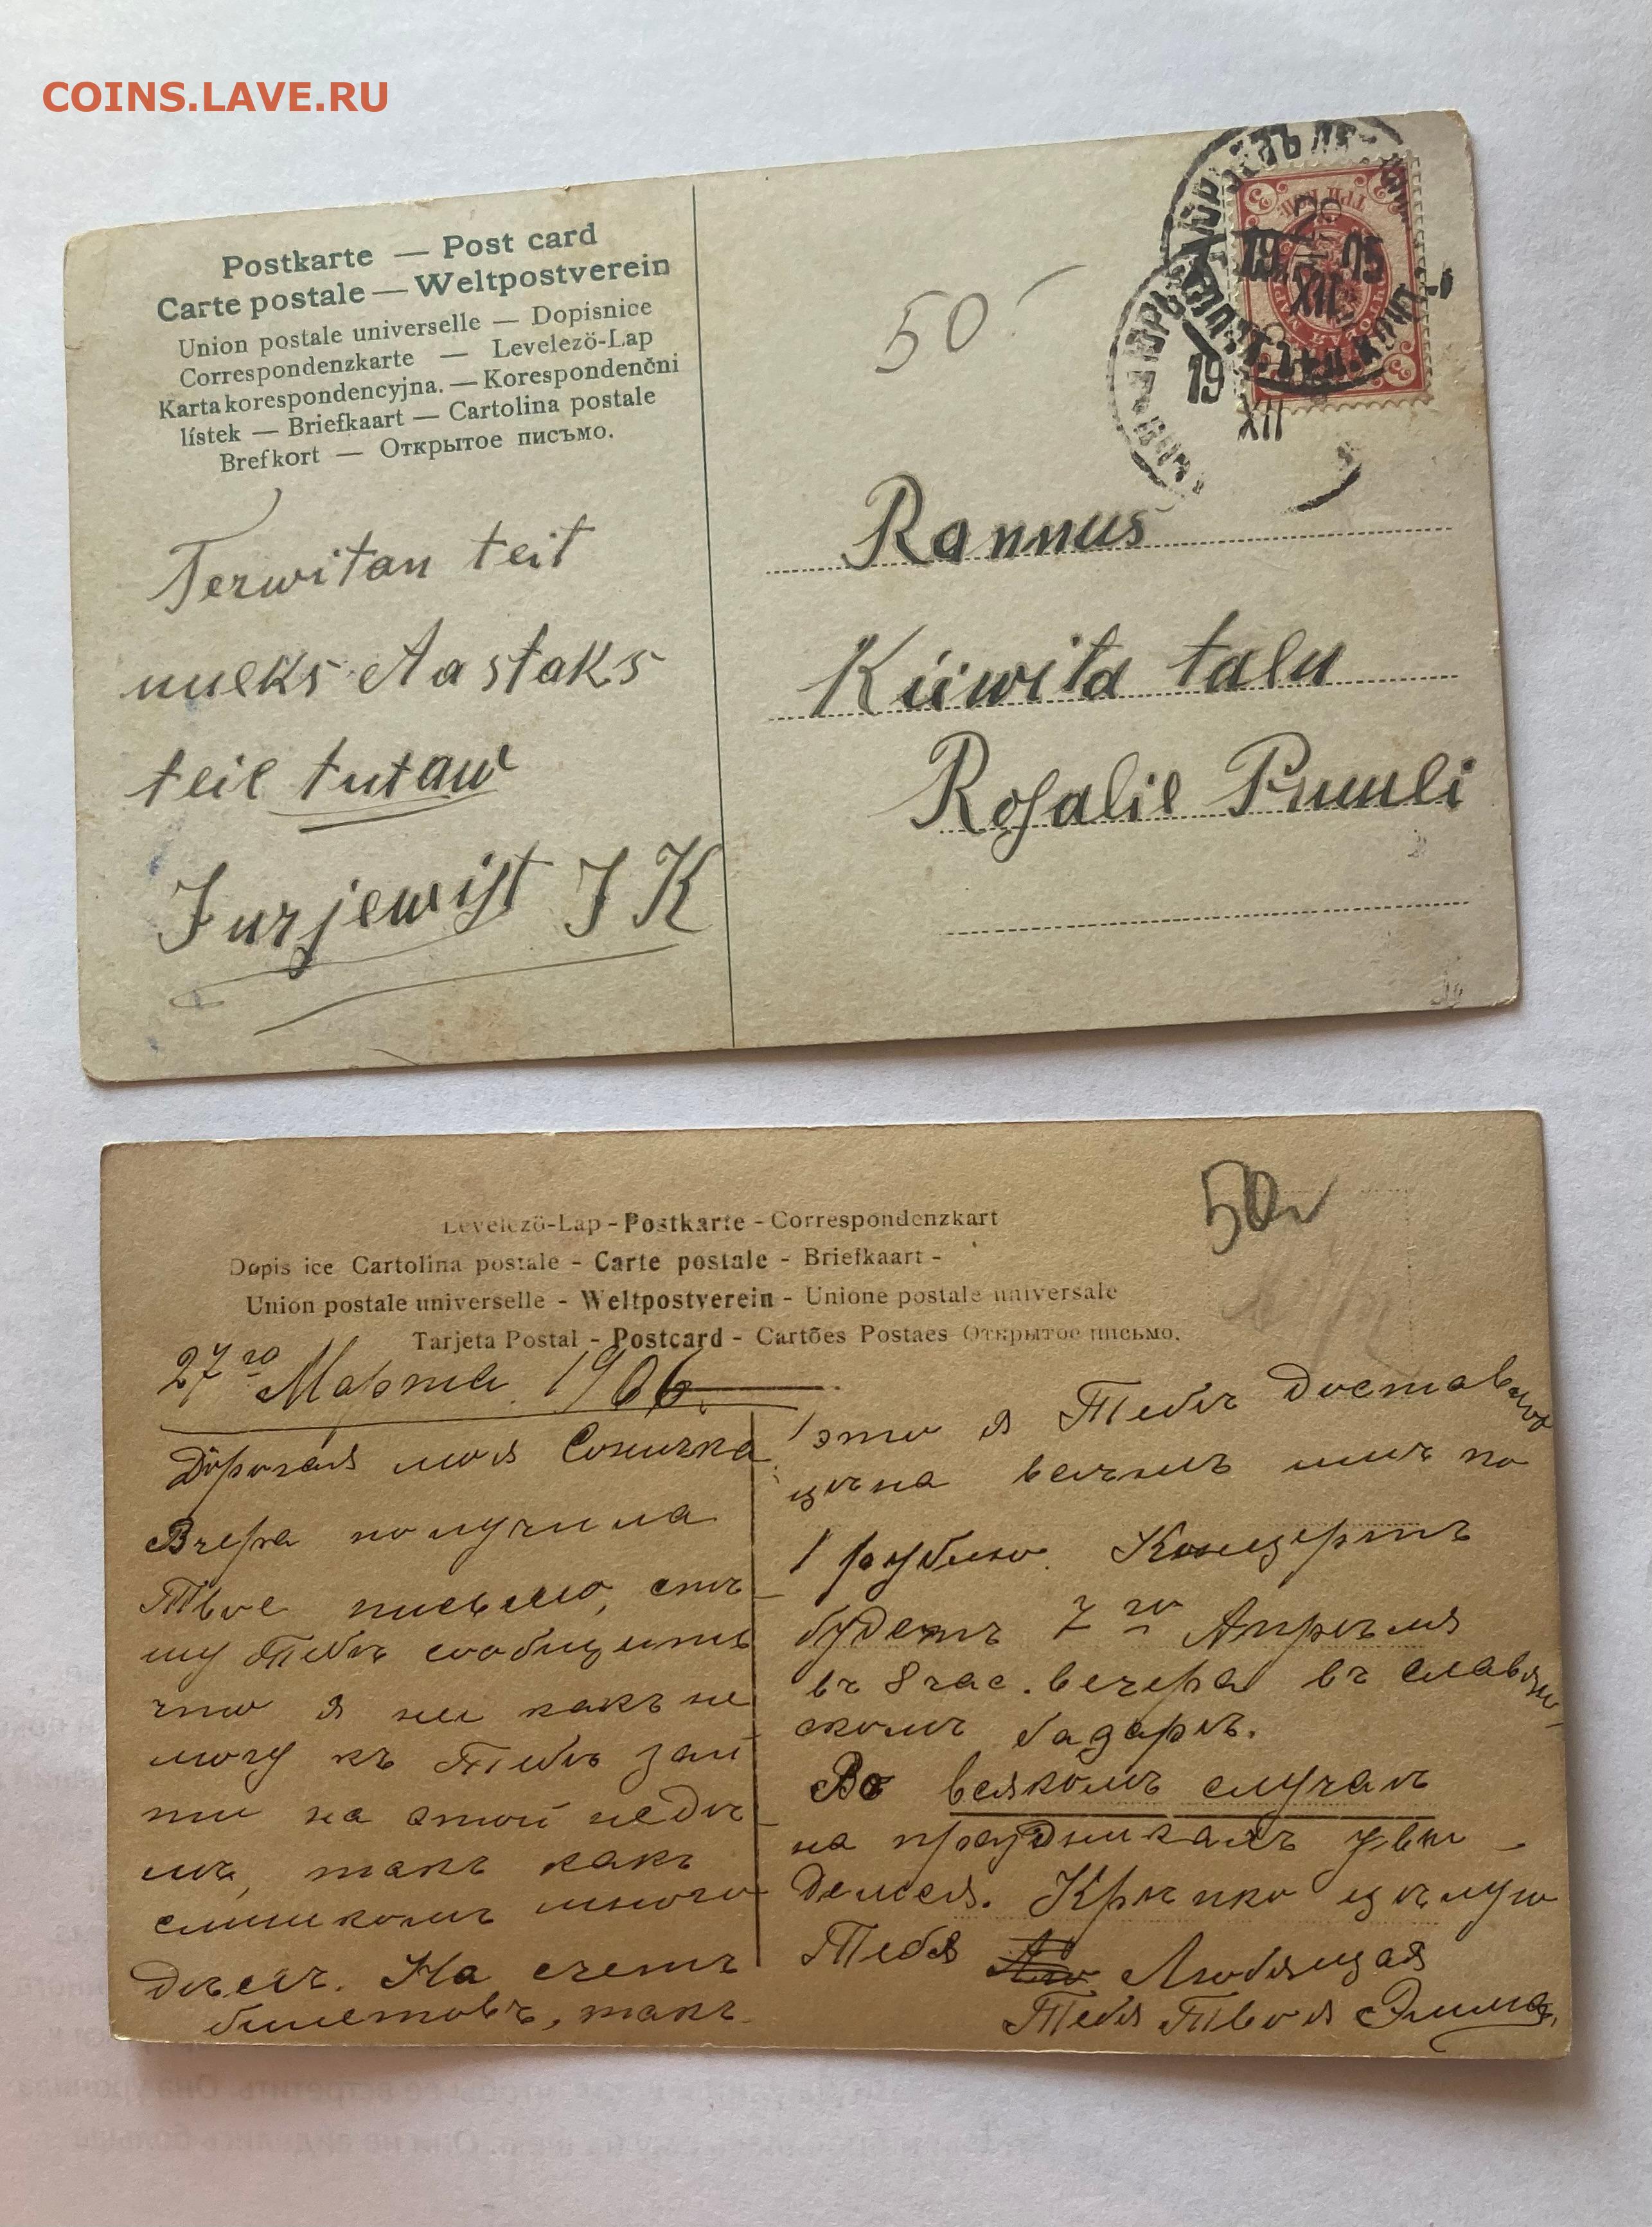 COINS.LAVE.RU
Postkarte — Post card
Carte postale — Weltpostverein
Union postale universelle — Dopisnice
Correspondenzkarte — Levelezö-Lap
Karta korespondencyjna. — Korespondenčni
lístek — Briefkaart — Cartolina postale
Brefkort — Открытое письмо.
Terwitan teit
uueks Aastaks
teie tutaw
Jurjewist J K
50
ТРИ КОП.
3
19 XII 05
19
XII
Rannus
Küwita talu
Rosalie Pruuli
50
Levelezö-Lap - Postkarte - Correspondenzkart
Dopis ice Cartolina postale - Carte postale - Briefkaart -
Union postale universelle - Weltpostverein - Unione postale universale
Tarjeta Postal - Postcard - Cartões Postaes Открытое письмо.
27го Марта 1906.
Дорогая моя Соничка
Вчера получила
Твое письмо, спѣ
шу Тебѣ сообщить
что я ни какъ не
могу къ Тебѣ зай
ти на этой недѣ
лѣ, такъ какъ
слишкомъ много
дѣлъ. На счетъ
билетовъ, такъ
это я Тебѣ доставлю
цѣна всѣмъ имъ по
1 рублю. Концертъ
будетъ 7го Апрѣля
въ 8 час. вечера въ Славян
скомъ базарѣ.
Во всякомъ случаѣ
на праздникахъ уви-
димся. Крѣпко цѣлую
Тебя Любящая
Тебя Твоя Эмма.